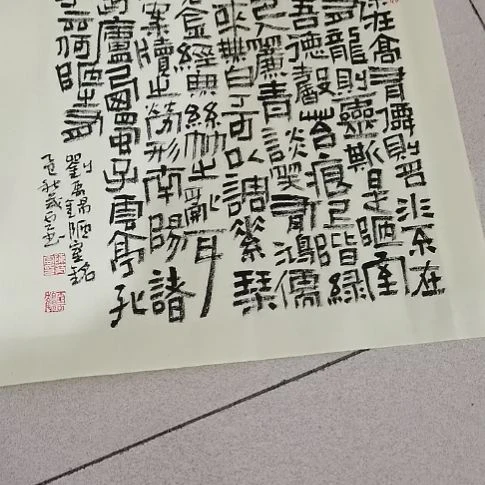 不在高有僊則名水不在
有龍則靈斯是陋室
吾德馨苔痕上階綠
色入簾青談笑有鴻儒
來無白丁可以調素琴
金經無絲竹之亂耳
案牘之勞形南陽諸
廬西蜀子雲亭孔
云何陋之有
劉禹錫陋室銘